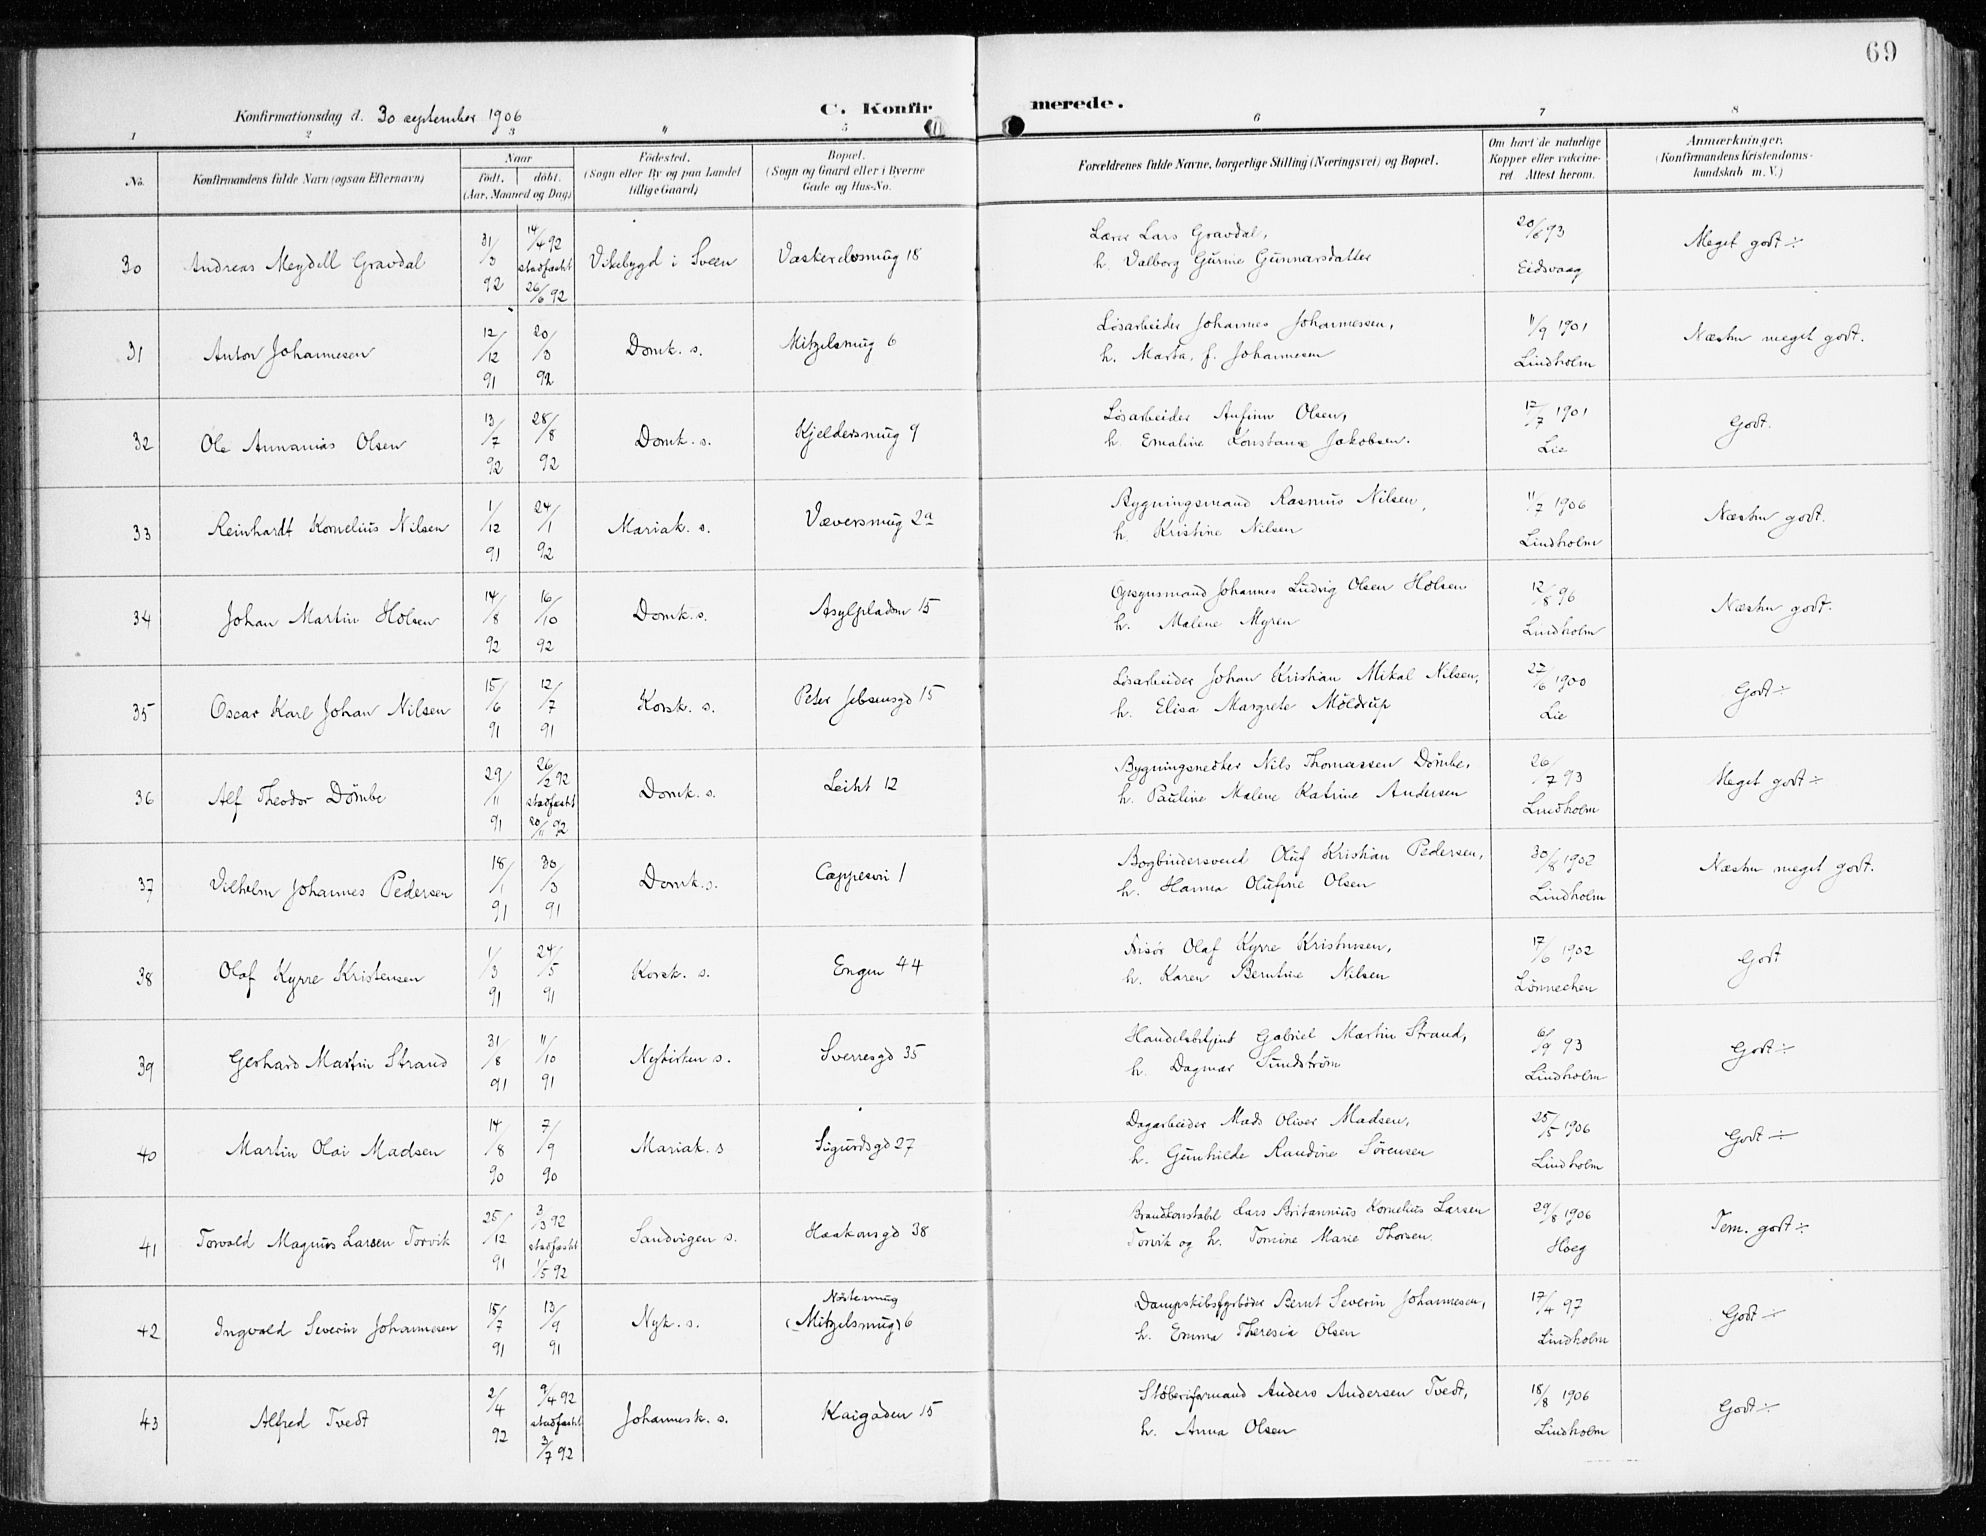 69
Konfirmationsdag d. 30 september 1906
C. Konfirmerede.
1 2 3 4 5 6 7 8
No. Konfirmandens fulde Navn (ogsaa Efternavn) Naar født. døbt. (Aar, Maaned og Dag) Fødested. (Sogn eller By og paa Landet tillige Gaard) Bopæl. (Sogn og Gaard eller i Byerne Gade og Hus-No. Forældrenes fulde Navne, borgerlige Stilling (Næringsvei) og Bopæl. Om havt de naturlige Kopper eller vakcineret Attest herom. Anmærkninger, (Konfirmandens Kristendomskundskab m. V.)
30 Andreas Meydell Gravdal 31/3 92 14/4 92 stadfæstet 26/6 92 Vikebygd i Sveen Vaskerelvsmug 18 Lærer Lars Gravdal, h. Valborg Gurine Gunnarsdatter 20/6 93 Eidsvaag Meget godt ÷
31 Anton Johannesen 12/12 91 20/3 92 Domk. s. Mitzelsmug 6 Løsarbeider Johannes Johannessen, h. Marta, f. Johannesen 11/9 1901 Lindholm Næsten meget godt.
32 Ole Annanias Olsen 13/7 92 28/8 92 Domk. s. Kjeldersmug 9 Løsarbeider Anfinn Olsen, h. Emaline Konstanse Jakobsen. 12/7 1901 Lie Godt.
33 Reinhardt Kornelius Nilsen 1/12 91 24/1 92 Mariak. s. Væversmug 2a Bygningsmand Rasmus Nilsen, h. Kristine Nilsen 11/7 1906 Lindholm Næsten godt.
34 Johan Martin Holsen 14/8 92 16/10 92 Domk. s. Asylpladsen 15 Opsynsmand Johannes Ludvig Olsen Holsen h. Malene Myren 12/8 96 Lindholm Næsten godt.
35 Oscar Karl Johan Nilsen 15/6 91 12/7 91 Korsk. s. Peter Jebsensgd 15 Løsarbeider Johan Kristian Mikal Nilsen, h. Elisa Margrete Möldrup 27/6 1900 Lie Godt ÷
36 Alf Theodor Dömbe 29/11 91 26/2 92 stadfæstet 20/11 92 Domk. s. Leitet 12 Bygningsnedker Nils Thomassen Dömbe, h. Pauline Malene Katrine Andersen 26/7 93 Lindholm Meget godt ÷
37 Vilhelm Johannes Pedersen 18/1 91 30/3 91 Domk. s. Cappesvei 1 Bogbindersvend Oluf Kristian Pedersen, h. Hanna Olufine Olsen 30/8 1902 Lindholm Næsten meget godt.
38 Olaf Kyrre Kristensen 1/3 91 24/5 91 Korsk. s. Engen 44 Frisør Olaf Kyrre Kristensen, h. Karen Berntine Nilsen 17/6 1902 Lönnechen Godt
39 Gerhard Martin Strand 31/8 91 11/10 91 Nykirken s. Sverresgd 35 Handelsbetjent Gabriel Martin Strand, h. Dagmar Sundström 6/9 93 Lindholm Godt ÷
40 Martin Olai Madsen 14/8 90 7/9 90 Mariak. s Sigurdsgd 27 Dagarbeider Mads Oliver Madsen, h. Gunhilde Randine Sörensen 25/5 1906 Lindholm Godt ÷
41 Torvald Magnus Larsen Torvik 25/12 91 3/3 92 stadfæstet 1/5 92 Sandvigen s. Haakonsgd 38 Brandkonstabel Lars Britannius Kornelius Larsen Torvik og h. Tomine Marie Thorsen. 29/8 1906 Hoeg Tem. godt ÷
42 Ingvald Severin Johannesen 15/7 91 13/9 91 Nyk. s. Nöstemug (Mitzelsmug) 6 Dampskibsfyrböder Bernt Severin Johannesen, h. Emma Theresia Olsen 17/4 97 Lindholm Godt ÷
43 Alfred Tvedt 2/4 92 9/4 92 stadfæstet 3/7 92 Johannesk. s. Kaigaden 15 Stöberiformand Anders Andersen Tvedt, h. Anna Olsen 18/8 1906 Lindholm Godt ÷